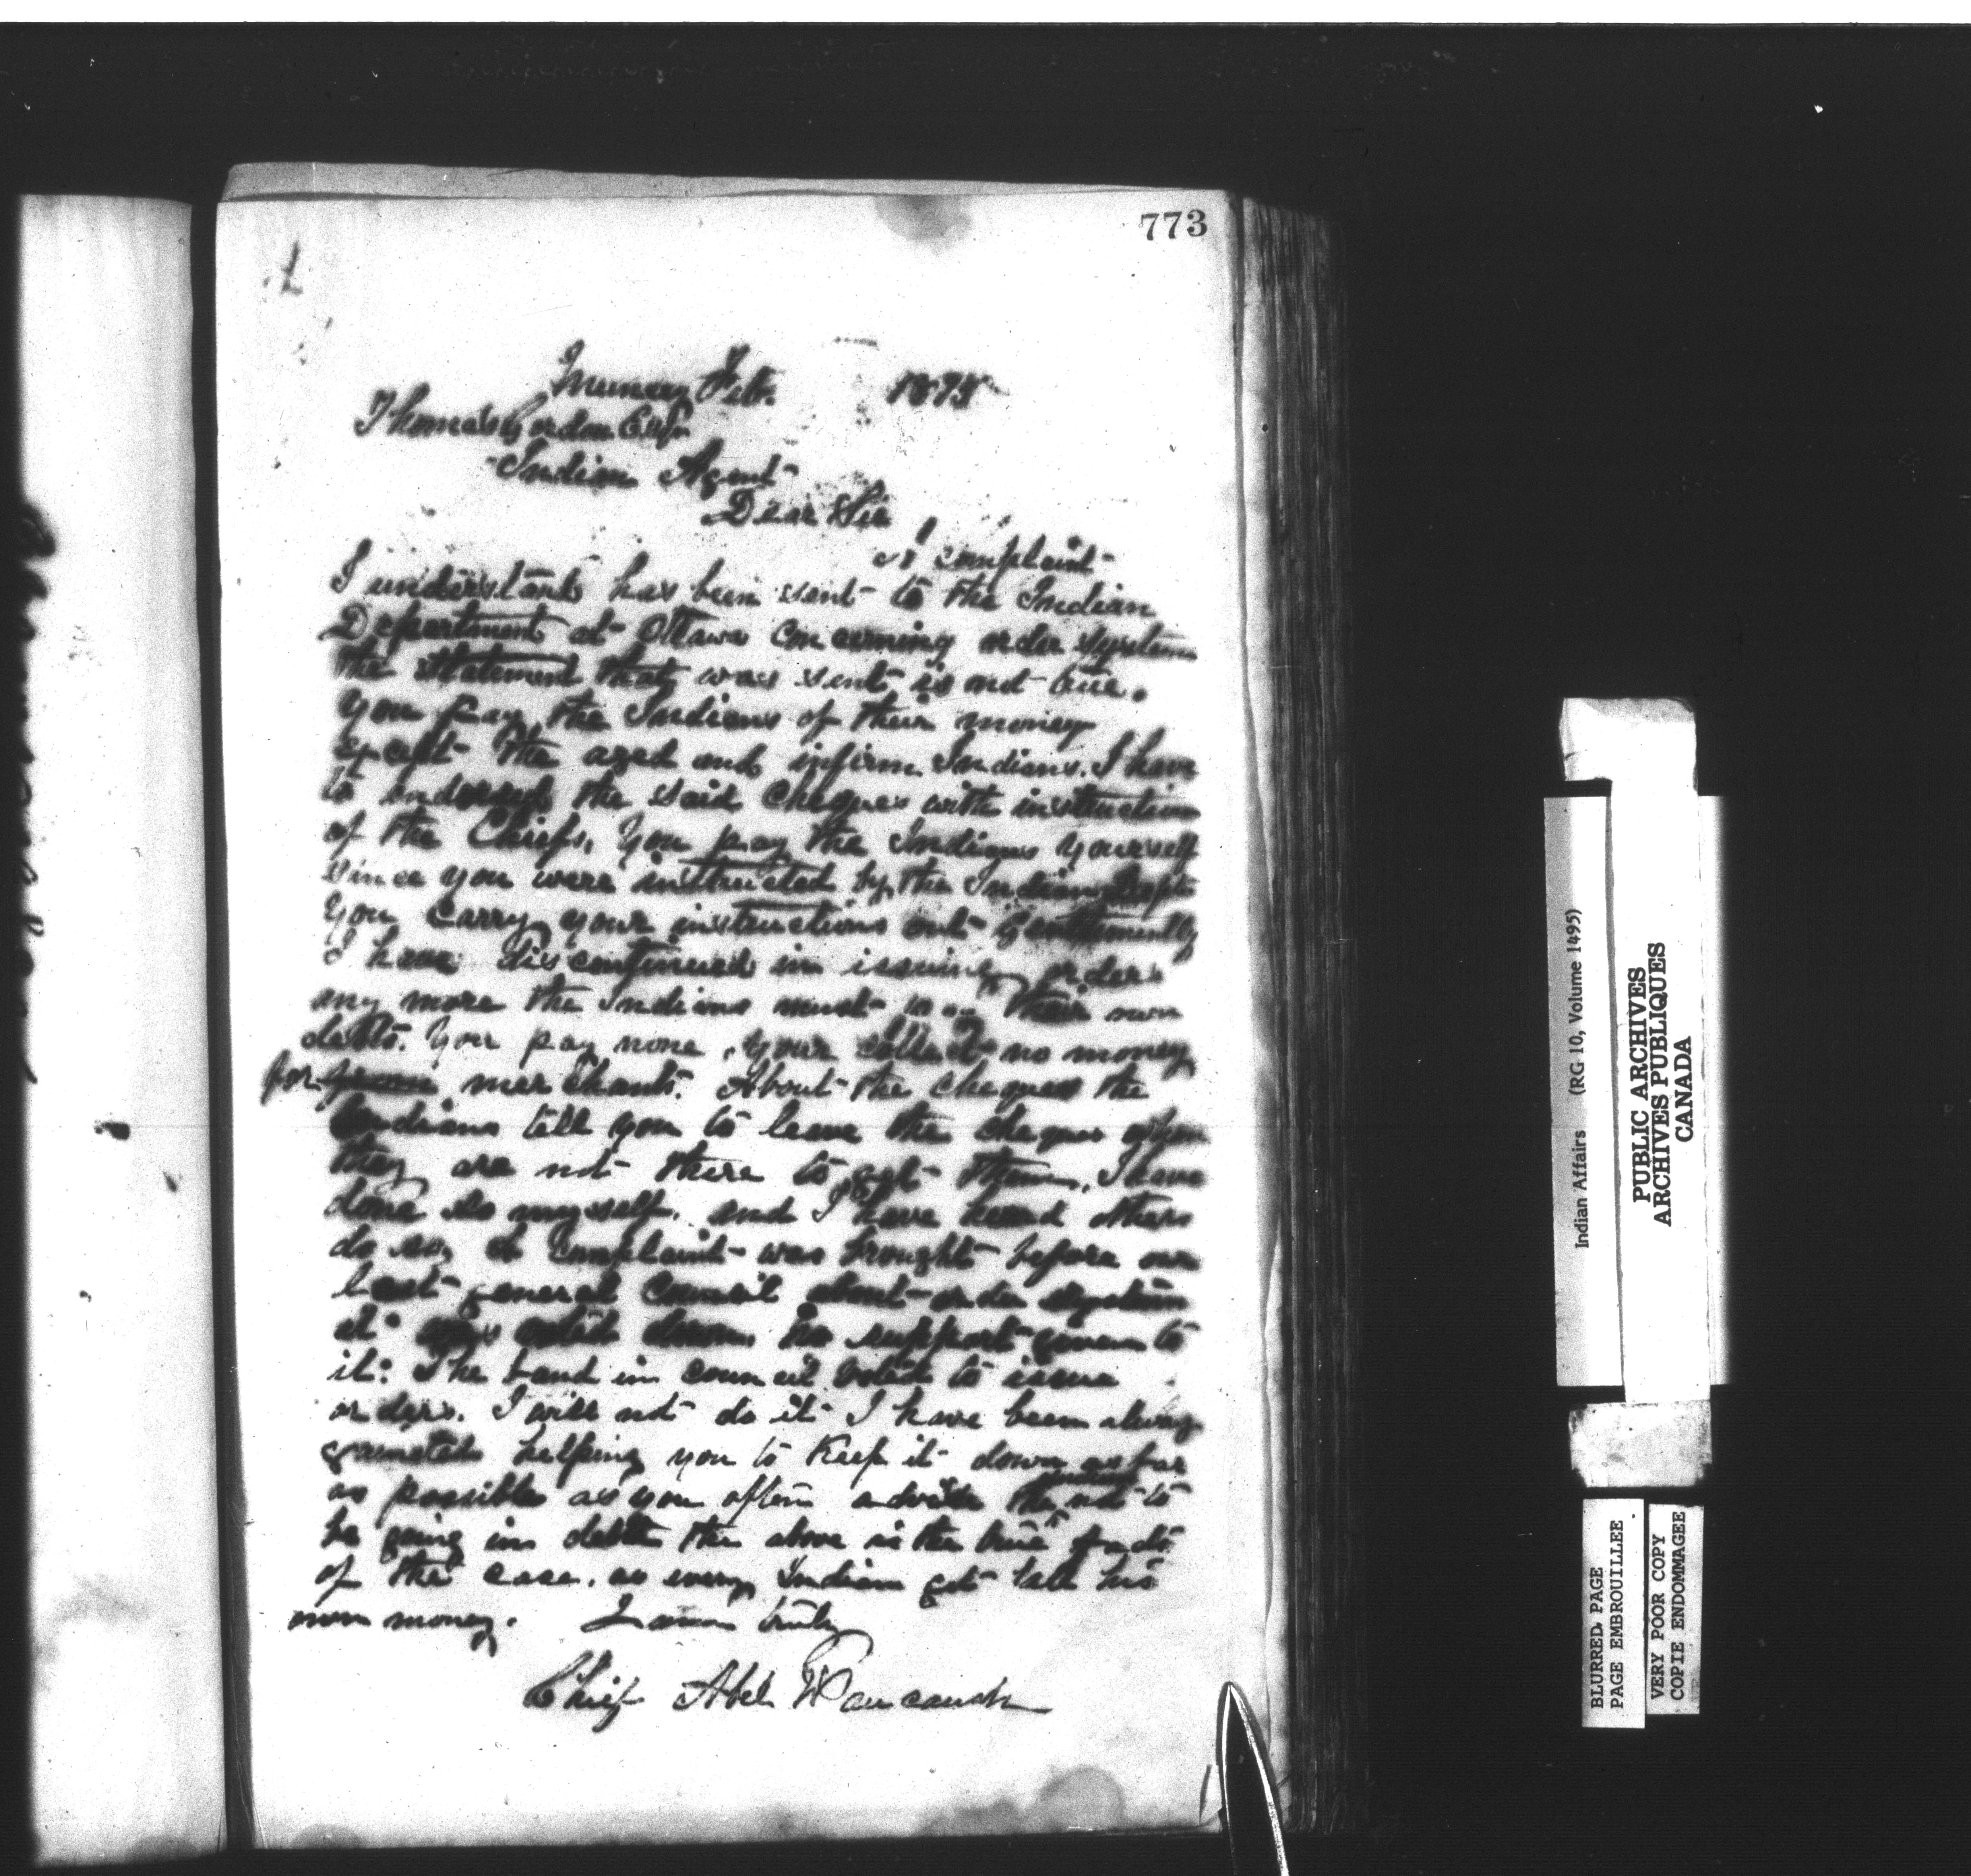 773
Muncey Feb. 1875
Thomas Gordon Esqr
Indian Agent
Dear Sir
A complaint
I understand has been sent to the Indian
Department at Ottawa concerning order system
the statement that was sent is not true.
You pay the Indians of their money
except the aged and infirm Indians. I have
to endorse the said cheques with instruction
of the Chiefs. You pay the Indians yourself
since you were instructed by the Indian Dept
You carry your instructions out
I have discontinued in issuing orders
any more the Indians must their own
debts. You pay none, your collect no money
for merchants. About the cheques the
Indians tell you to leave the cheques when
they are not there to get them. I have
done so myself. and I have heard others
do so, A complaint was brought before our
last general Council about order system
it was voted down. no support given to
it: The band in council voted to issue
orders. I will not do it I have been always
helping you to keep it down as far
as possible as you often advise the Indians not to
be going in debt the above is the true facts
of the case. as every Indian get his
own money. I am truly
Chief Abel
Indian Affairs (RG 10, Volume 1495)
PUBLIC ARCHIVES
ARCHIVES PUBLIQUES
CANADA
BLURRED PAGE
PAGE EMBROUILLEE
VERY POOR COPY
COPIE ENDOMMAGEE